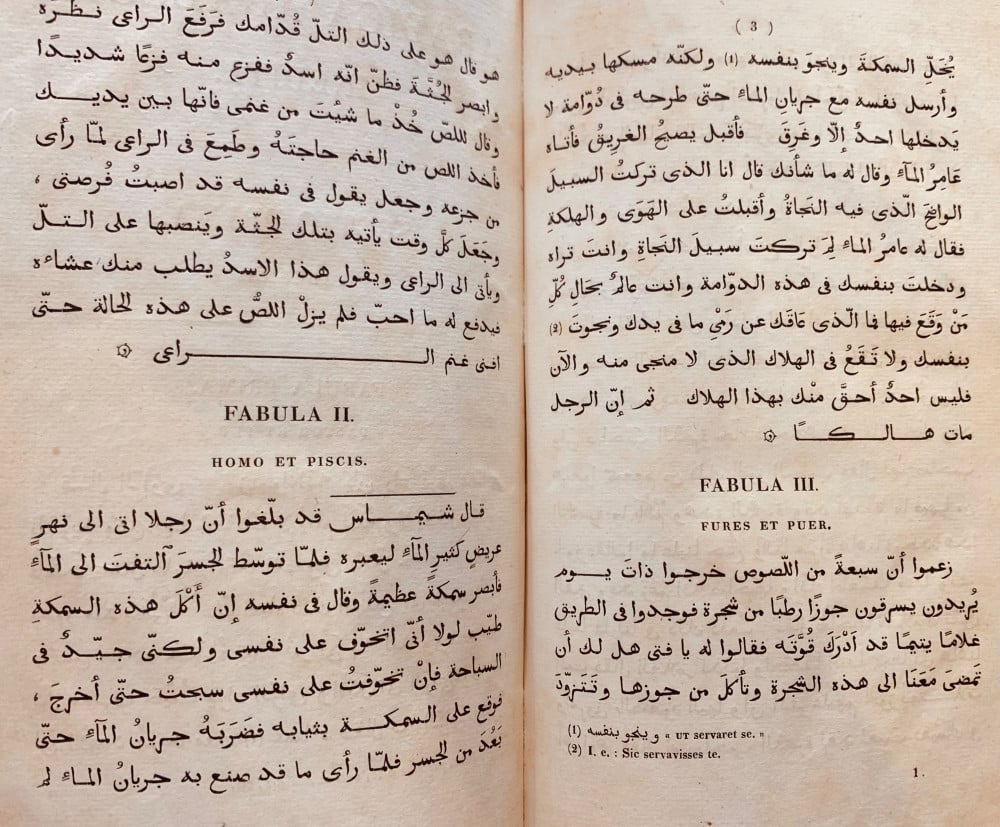 هو قال هو على ذلك التلّ قُدّامك فرَفَعَ الراعى نظَرَهُ
وابصر الجُثّةَ فظنّ انّه اسدُ ففزع منه فزعًا شديدًا
وقال لللصّ خُذْ ما شيُتَ من غنمى فانّها بين يديك
فأخذ اللص من الغنم حاجتَهُ وطَمِعَ فى الراعى لمّا رأى
من جزعه وجعل يقول فى نفسه قد اصبتُ فُرصتى ،
وجَعَلَ كلَّ وقت يأتيه بتلك الجثّة ويَنصبها على التلّ
ويأتى الى الراعى ويقول هذا الاسدُ يطلب منك عشاءه
فيدفع له ما احبّ فلم يزلْ اللصُّ على هذه الحالة حتّى
افنى غنم الراعى
FABULA II.
HOMO ET PISCIS.
قال شيماس قد بلّغوا أنّ رجلا اتى الى نهرٍ
عريضٍ كثيرِ المآءِ ليعبره فلمّا توسّط الجسرَ ٱلتفتَ الى المآءِ
فأبصر سمكةً عظيمةً وقال فى نفسه إنّ أَكْلَ هذه السمكةِ
طيّب لولا أنّى اتخوّف على نفسى ولكنّى جيّدُ فى
السباحة فإنْ تخوّفتُ على نفسى سبحتُ حتّى أخرجَ ،
فوقع على السمكة بثيابه فضَرَبَهُ جريانُ المآءِ حتّى
بَعُدَ من الجسر فلمّا رأى ما قد صنع به جريانُ الماءِ لم
( 3 )
يُخَلِّ السمكةَ وينجوَ بنفسه (1) ولكنّه مسكها بيديه
وأرسل نفسه مع جريانِ الماءِ حتّى طرحه فى دُوّامة لا
يَدخلها احدُ إلّا وغَرِقَ فأقبل يصيحُ الغريقُ فأتاه
عَامِرُ المآءِ وقال له ما شأنك قال انا الذى تركتُ السبيلَ
الواضحَ الّذى فيه النجاةُ وأقبلتُ على الهَوَى والهلكةِ
فقال له عامرُ الماءِ لِمَ تركت سبيلَ النجاةِ وانت تراه
ودخلتَ بنفسك فى هذه الدوّامة وانت عالمُ بحَالِ كُلِّ
مَنْ وَقَعَ فيها فما الّذى عَاقَك عن رَمْىِ ما فى يدك ونجوتَ (2)
بنفسك ولا تَقَعُ فى الهلاك الذى لا منجى منه والآن
فليس احدُ أحقَّ منْك بهذا الهلاك ثم إنّ الرجل
مات هالكًا
FABULA III.
FURES ET PUER.
زعموا أنّ سبعةً من اللّصوص خرجوا ذاتَ يوم
يُريدون يسرقون جوزًا رطبًا من شجرة فوجدوا فى الطريق
غلامًا يتيمًا قد اَدْرَكَ قُوَّتَه فقالوا له يا فتى هل لك أن
تمضىَ مَعَنَا الى هذه الشجرة وتأكلَ من جوزها وتَتَزوَّدَ
(1) وينجو بنفسه « UT servaret se. »
(2) I. e. : Sic servavisses te.
1.